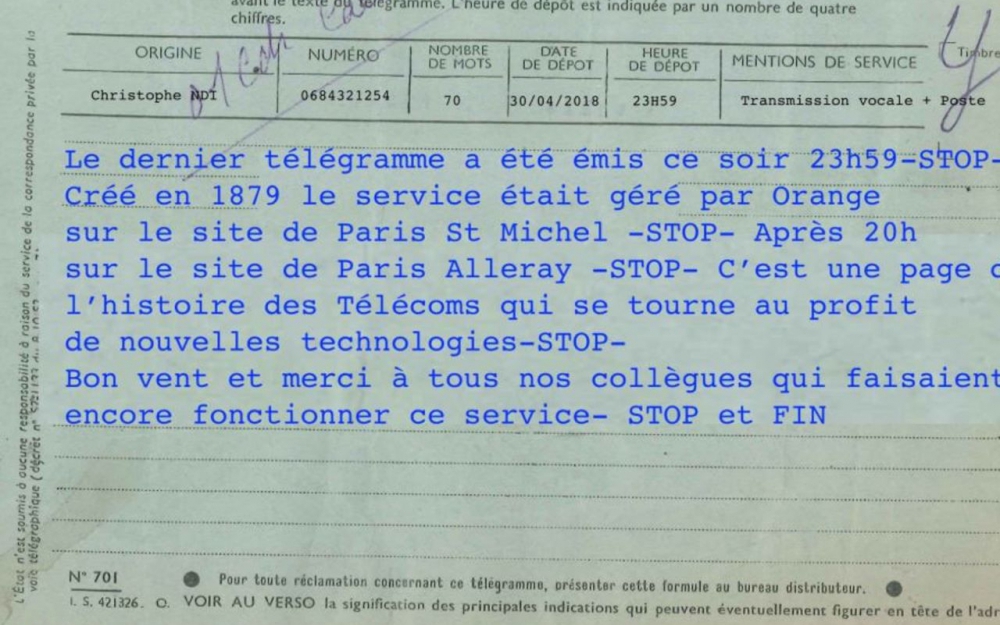 avant le texte du télégramme. L'heure de dépôt est indiquée par un nombre de quatre
chiffres.
ORIGINE NUMÉRO NOMBRE DE MOTS DATE DE DÉPOT HEURE DE DÉPOT MENTIONS DE SERVICE Timbre
Christophe NDI 0684321254 70 30/04/2018 23H59 Transmission vocale + Poste
Le dernier télégramme a été émis ce soir 23h59-STOP-
Créé en 1879 le service était géré par Orange
sur le site de Paris St Michel -STOP- Après 20h
sur le site de Paris Alleray -STOP- C'est une page
l'histoire des Télécoms qui se tourne au profit
de nouvelles technologies-STOP-
Bon vent et merci à tous nos collègues qui faisaient
encore fonctionner ce service- STOP et FIN
N° 701 ● Pour toute réclamation concernant ce télégramme, présenter cette formule au bureau distributeur. ●
I. S. 421326. O. VOIR AU VERSO la signification des principales indications qui peuvent éventuellement figurer en tête de l'adr
L'État n'est soumis à aucune responsabilité à raison du service de la correspondance privée par la
voie télégraphique (décret n°